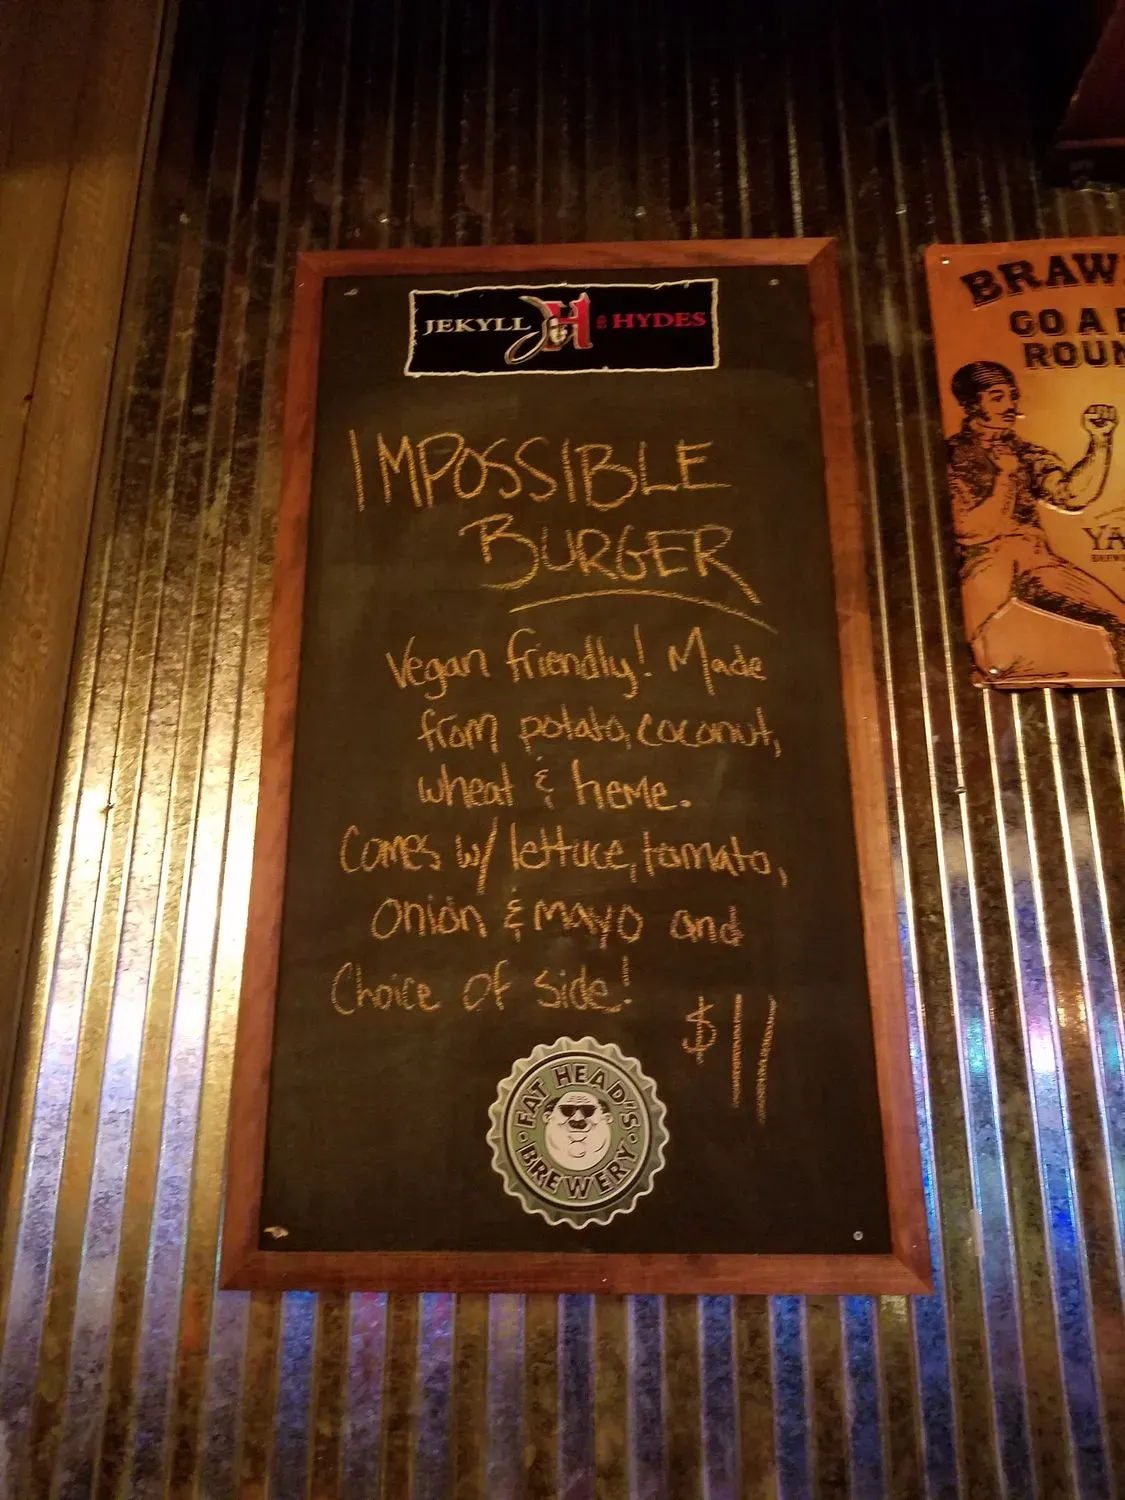 JEKYLL JH AND HYDES
IMPOSSIBLE
BURGER
Vegan friendly! Made
from potato, coconut,
wheat & heme.
Comes w/ lettuce, tomato,
onion & mayo and
Choice of side!
$11
FAT HEAD'S
BREWERY
BRAW
GO A
ROUN
YA